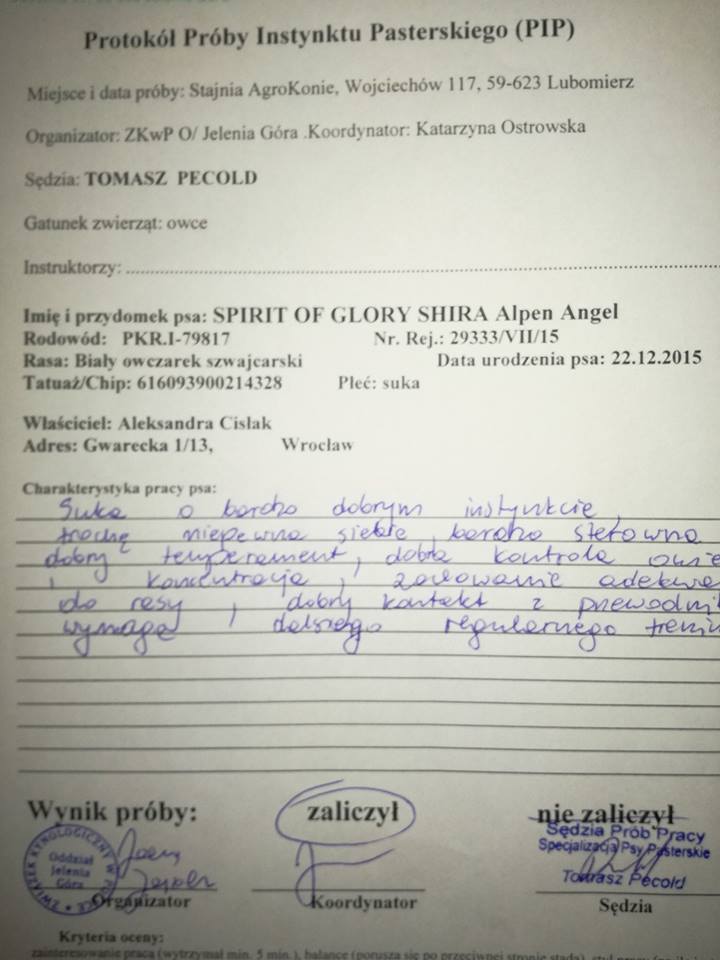 Protokół Próby Instynktu Pasterskiego (PIP)
Miejsce i data próby: Stajnia AgroKonie, Wojciechów 117, 59-623 Lubomierz
Organizator: ZKwP O/ Jelenia Góra .Koordynator: Katarzyna Ostrowska
Sędzia: TOMASZ PECOLD
Gatunek zwierząt: owce
Instruktorzy:
Imię i przydomek psa: SPIRIT OF GLORY SHIRA Alpen Angel
Rodowód: PKR.I-79817 Nr. Rej.: 29333/VII/15
Rasa: Biały owczarek szwajcarski Data urodzenia psa: 22.12.2015
Tatuaż/Chip: 616093900214328 Płeć: suka
Właściciel: Aleksandra Cisłak
Adres: Gwarecka 1/13, Wrocław
Charakterystyka pracy psa:
Suka o bardzo dobrym instynkcie,
trochę niepewna siebie, bardzo sterowna
dobry temperament, dobra kontrola owie
i koncentracja, zachowanie adekwa
do rasy, dobry kontakt z przewodni
wymaga dalszego regularnego trenin
Wynik próby: zaliczył nie zaliczył
ZWIĄZEK KYNOLOGICZNY W POLSCE
Oddział
Jelenia
Góra
Sędzia Prób Pracy
Specjalizacja Psy Pasterskie
Tomasz Pecold
Organizator Koordynator Sędzia
Kryteria oceny:
zainteresowanie pracą (wytrzymał min. 5 min.), balance (porusza się po przeciwnej stronie stada), styl pracy